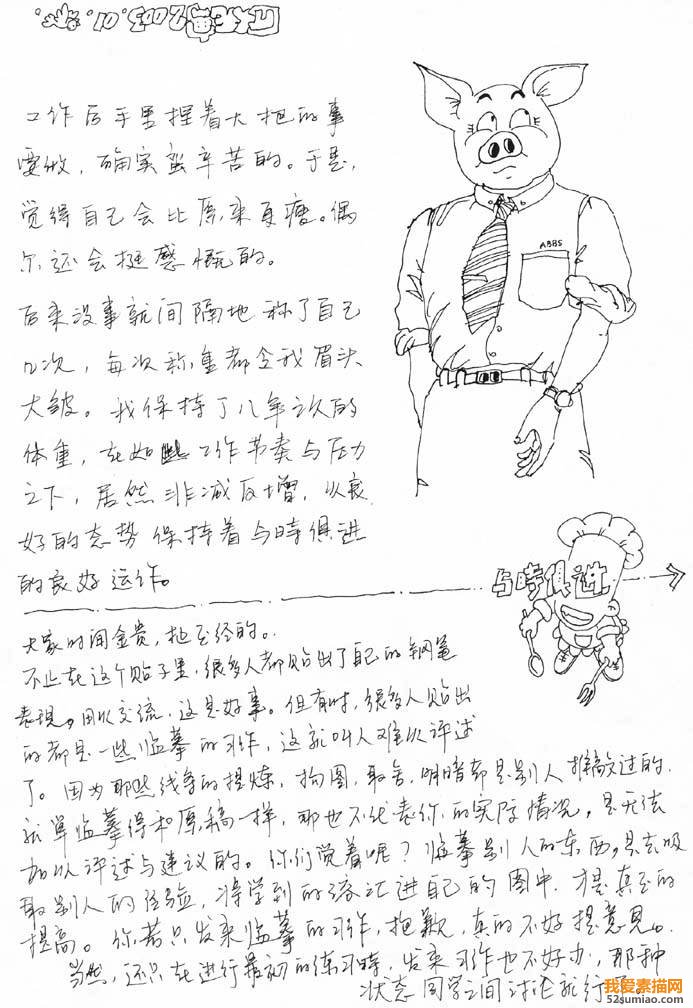 2003.01.
工作后手里捏着大把的事
要做，确实蛮辛苦的。于是，
觉得自己会比原来更瘦。偶
尔还会挺感慨的。
ABBS
后来没事就间隔地称了自己
几次，每次称重都令我眉头
大皱。我保持了八年之久的
体重，在如此工作节奏与压力
之下，居然非减反增，以良
好的态势保持着与時俱进
的良好运作。
与時俱进
大家时间金贵，挺至经的。
不止在这个贴子里，很多人都贴出了自己的钢笔
表现。用以交流，这是好事。但有时，很多人贴出
的都是一些临摹的习作，这就叫人难以评述
了。因为那些线条的提炼，构图，取舍，明暗都是别人推敲过的.
就算临摹得和原稿一样，那也不代表你的实际情况。是无法
加以评述与建议的。你们觉着呢？临摹别人的东西，是去吸
取别人的经验，将学到的溶汇进自己的图中，才是真正的
提高。你若只发来临摹的习作，抱歉，真的不好提意见。
当然，还只在进行最初的练习時，发来习作也不好办，那种
状态同学之间讨论就行了。
我爱素描网
52sumiao.com